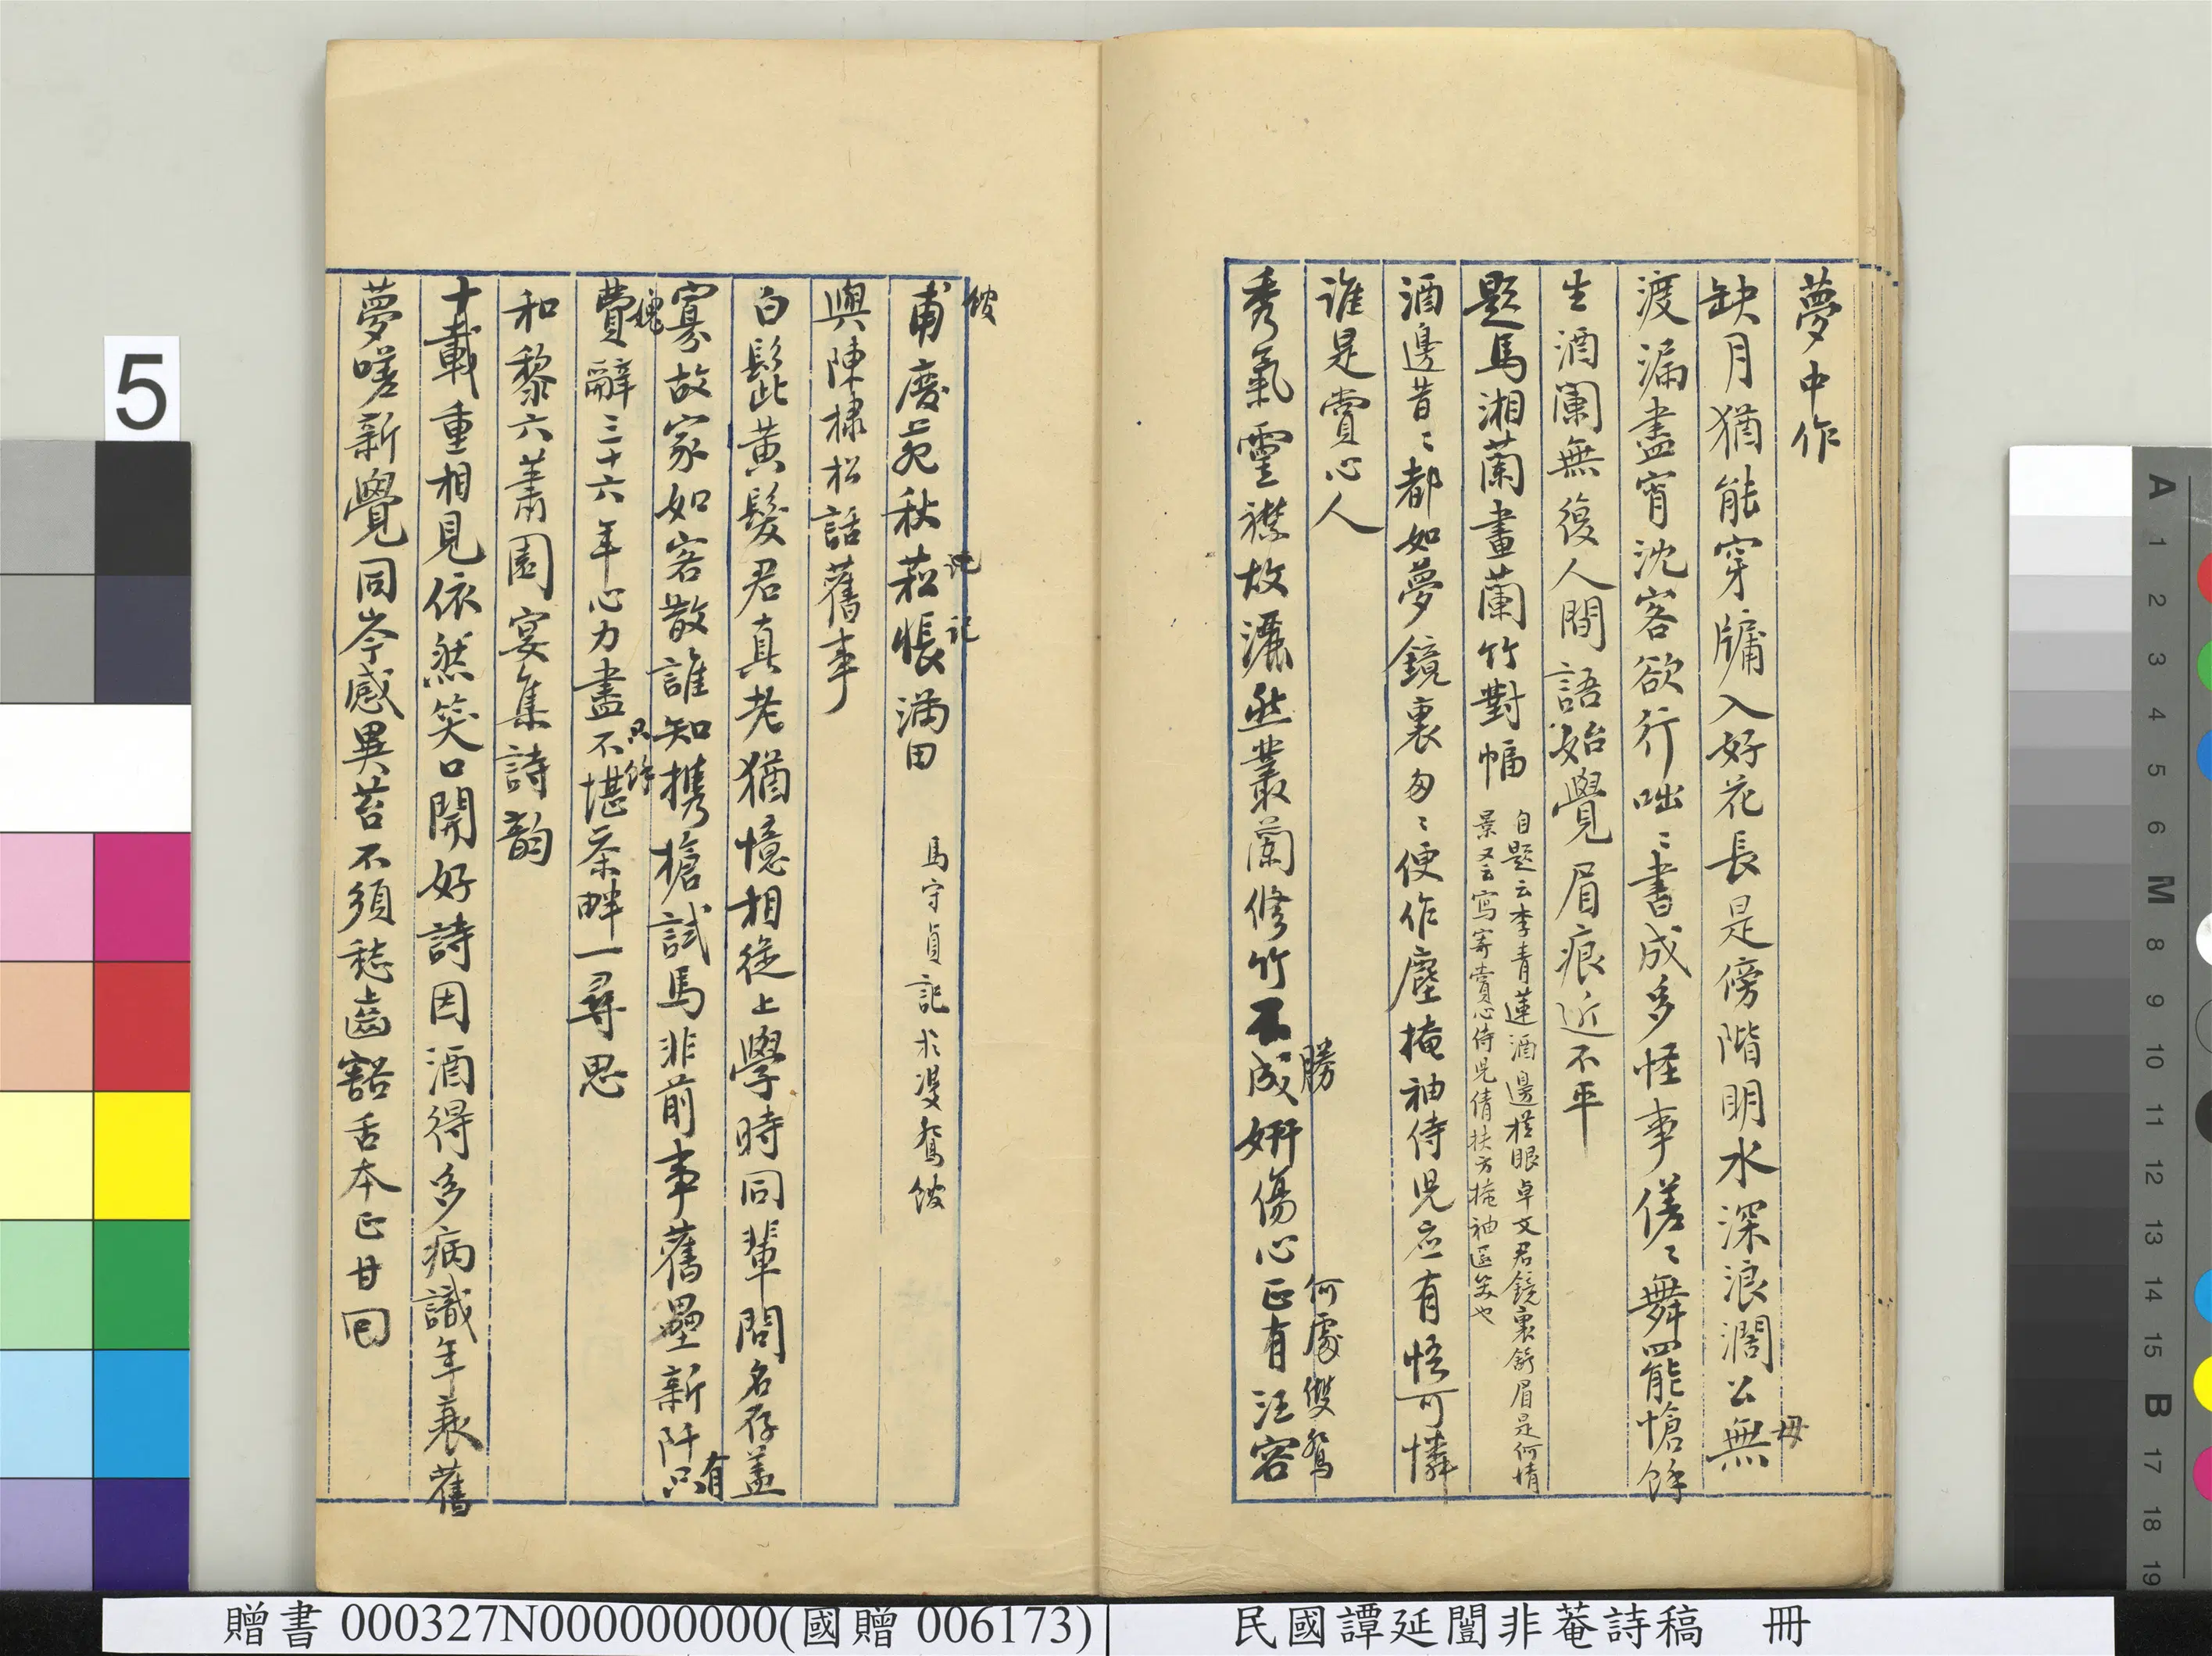 夢中作
缺月猶能穿牖入好花長是傍階明水深浪濶公無
毋
渡漏盡宵沈客欲行咄〻書成多怪事傞〻舞罷能愴餘
生酒闌無復人間語始覺眉痕近不平
題馬湘蘭畫蘭竹對幅
自題云李青蓮酒邊橫眼卓文君鏡裏舒眉是何情
景又云寫寄賞心侍兒倩扶方掩袖匿笑也
酒邊昔〻都如夢鏡裏匆〻便作塵掩袖侍兒應有悟可憐
誰是賞心人
秀氣靈襟故灑然叢蘭修竹不成妍傷心正有汪容
勝
何處雙鴛
甫废苑秋菘悵滿田
馬守貞記求雙鴛
與陳棣松話舊事
白髭黃髮君真老猶憶相從上學時同輩問名存蓋
寡故家如客散誰知攜槍試馬非前事舊壘新阡只有
費辭三十六年心力盡不堪茶畔一尋思
只餘
和黎六蕭園宴集詩韵
十載重相見依然笑口開好詩因酒得多病識年衰舊
夢嗟新覺同岑感異苔不須嵇齒豁舌本已甘回
5
贈書 000327N000000000(國贈 006173)
民國譚延闓非菴詩稿 冊
A 1 2 3 4 5 6 M 8 9 10 11 12 13 14 15 B 17 18 19